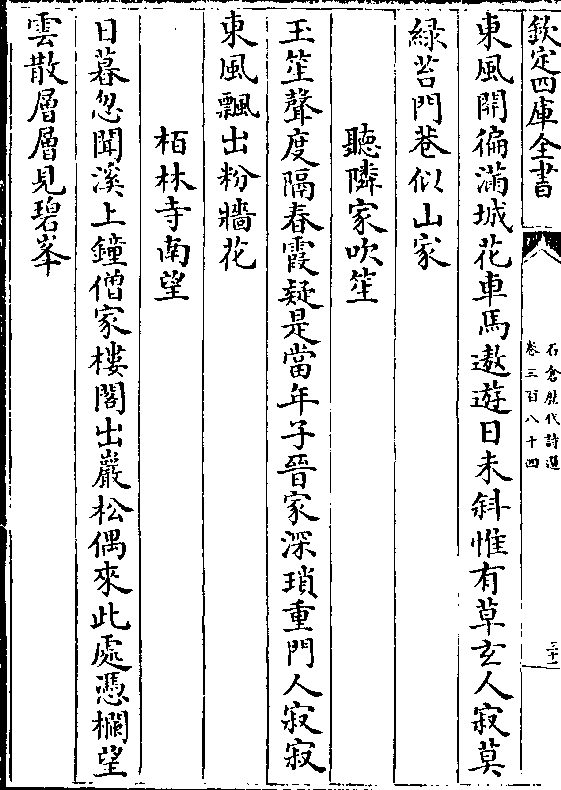 欽定四庫全書
石倉歷代詩選
卷三百八十四
東風開徧滿城花車馬遨遊日未斜惟有草玄人寂莫
緑苔門巷似山家
聽隣家吹笙
玉笙聲度隔春霞疑是當年子晉家深瑣重門人寂寂
東風飄出粉牆花
栢林寺南望
日暮忽聞溪上鐘僧家樓閣出巖松偶來此處憑欄望
雲散層層見碧峯